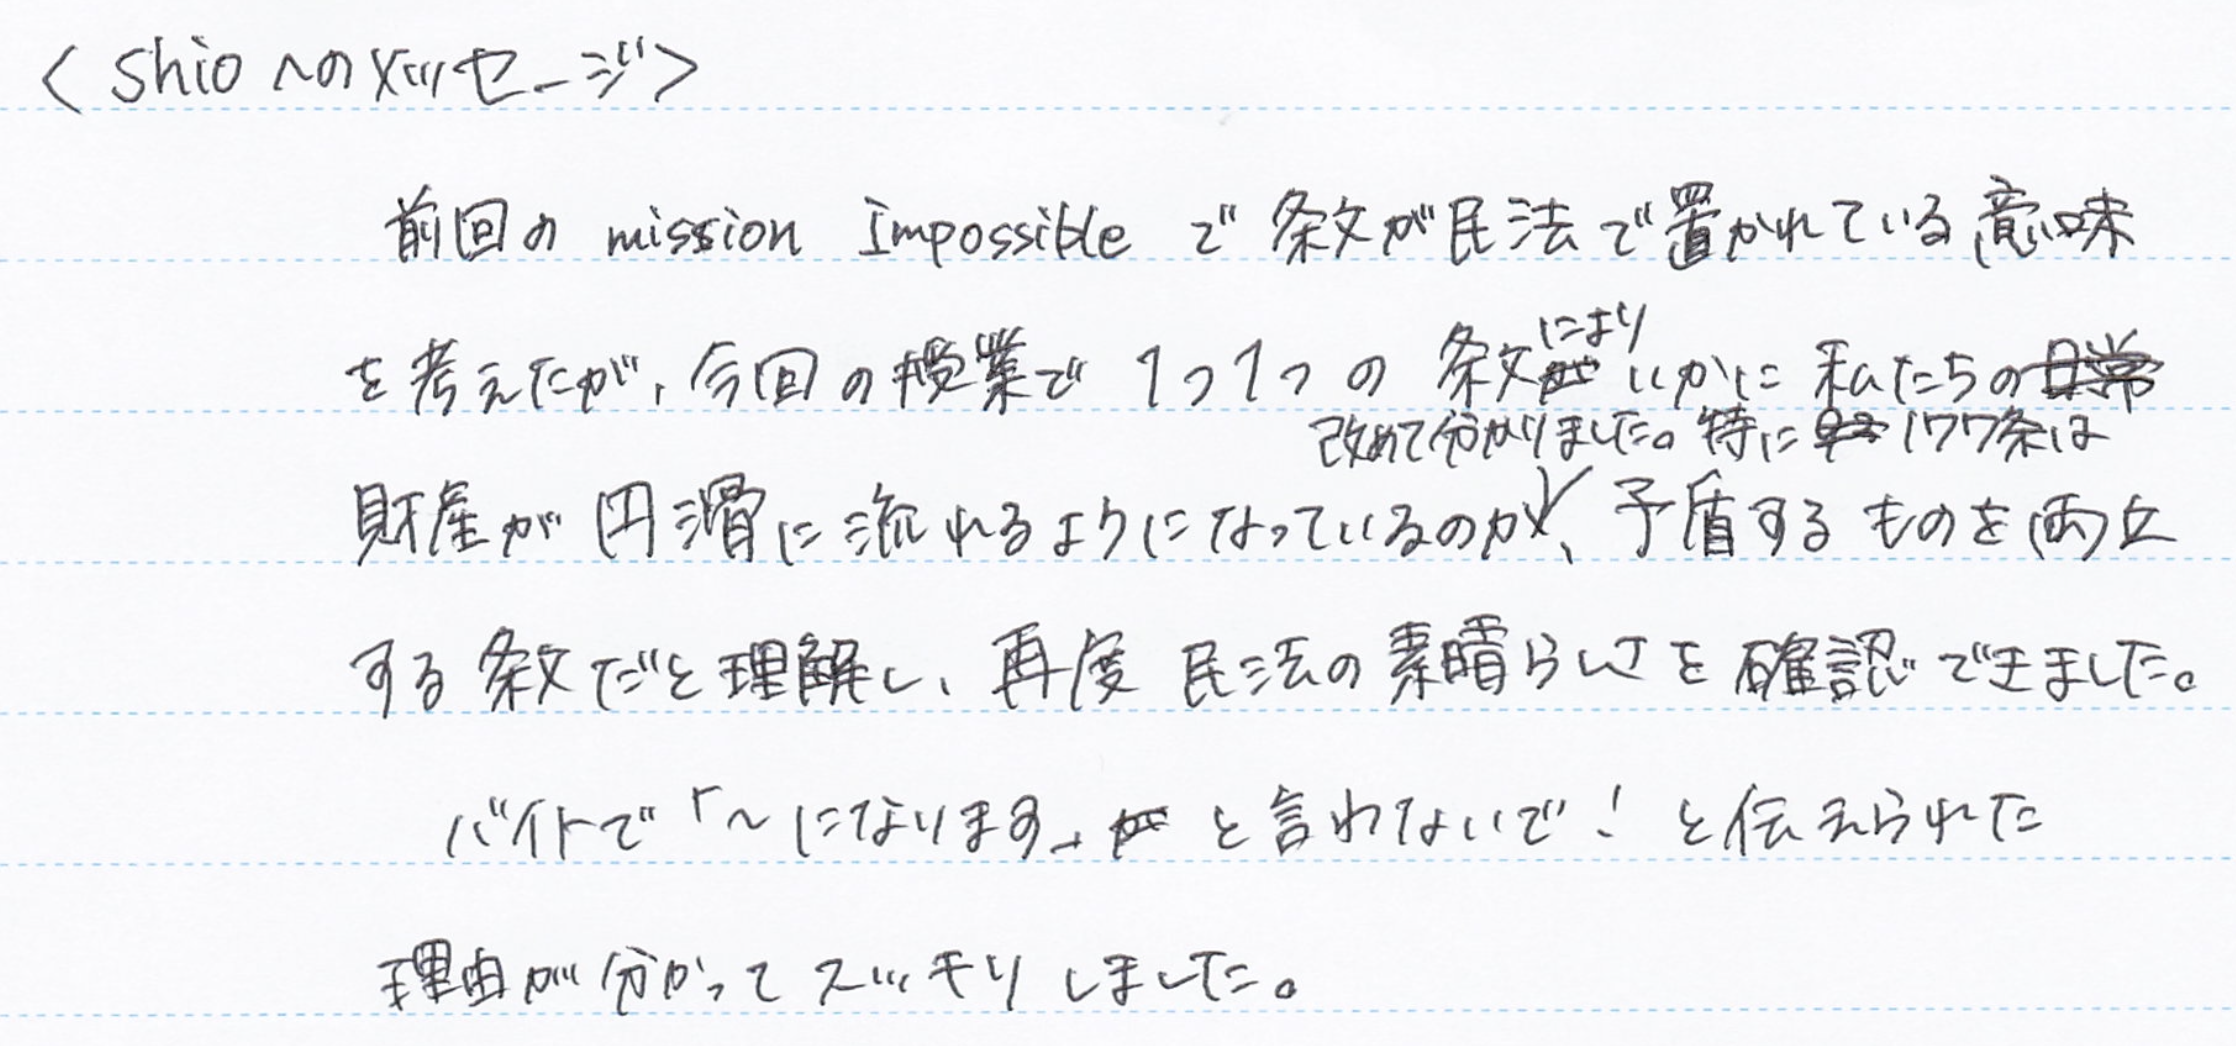 <shioへのメッセージ>
前回の mission Impossible で 条文が民法で置かれている意味
を考えたが、今回の授業で 1つ1つの 条文により いかに 私たちの
財産が 円滑に流れるようになっているのか 改めて分かりました。特に 177条は 矛盾する ものを両立
する 条文だと理解し、再度 民法の素晴らしさを確認できました。
バイトで「～になります」と言わないで！と伝えられた
理由が分かってスッキリしました。